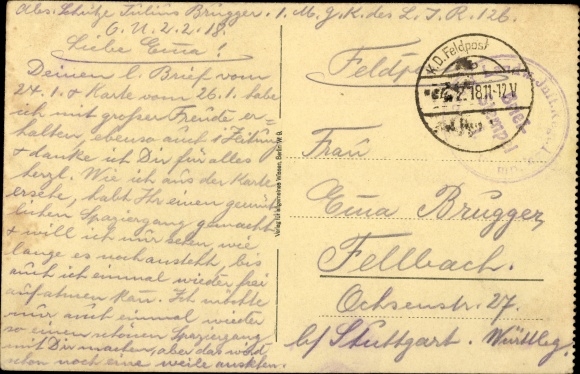 Abs. Schütze Julius Brügger, 1. M. G. K. des L. I. R. 126.
O. U. 2.2.18.
Liebe Emma!
Deinen l. Brief vom
24.1. & Karte vom 26.1. habe
ich mit großer Freude er-
halten, ebenso auch 1 Zeitung
& danke ich Dir für alles
herzl. Wie ich aus der Karte
ersehe, habt Ihr einen gemüt-
lichen Spaziergang gemacht
& will ich nur sehen, wie
lange es noch ansteht, bis
auch ich einmal wieder frei
aufatmen kann. Ich möchte
nur auch einmal wieder
so einen schönen Spaziergang
mit Dir machen, aber das wird
schon noch eine weile anstehen.
Verlag für allgemeines Wissen, Berlin W 9.
Feldpost
K.D. Feldpost
2.18 11-12 V
Brief
Frau
Emma Brugger,
Fellbach.
Ochsenstr. 27.
b/ Stuttgart. Württbg.